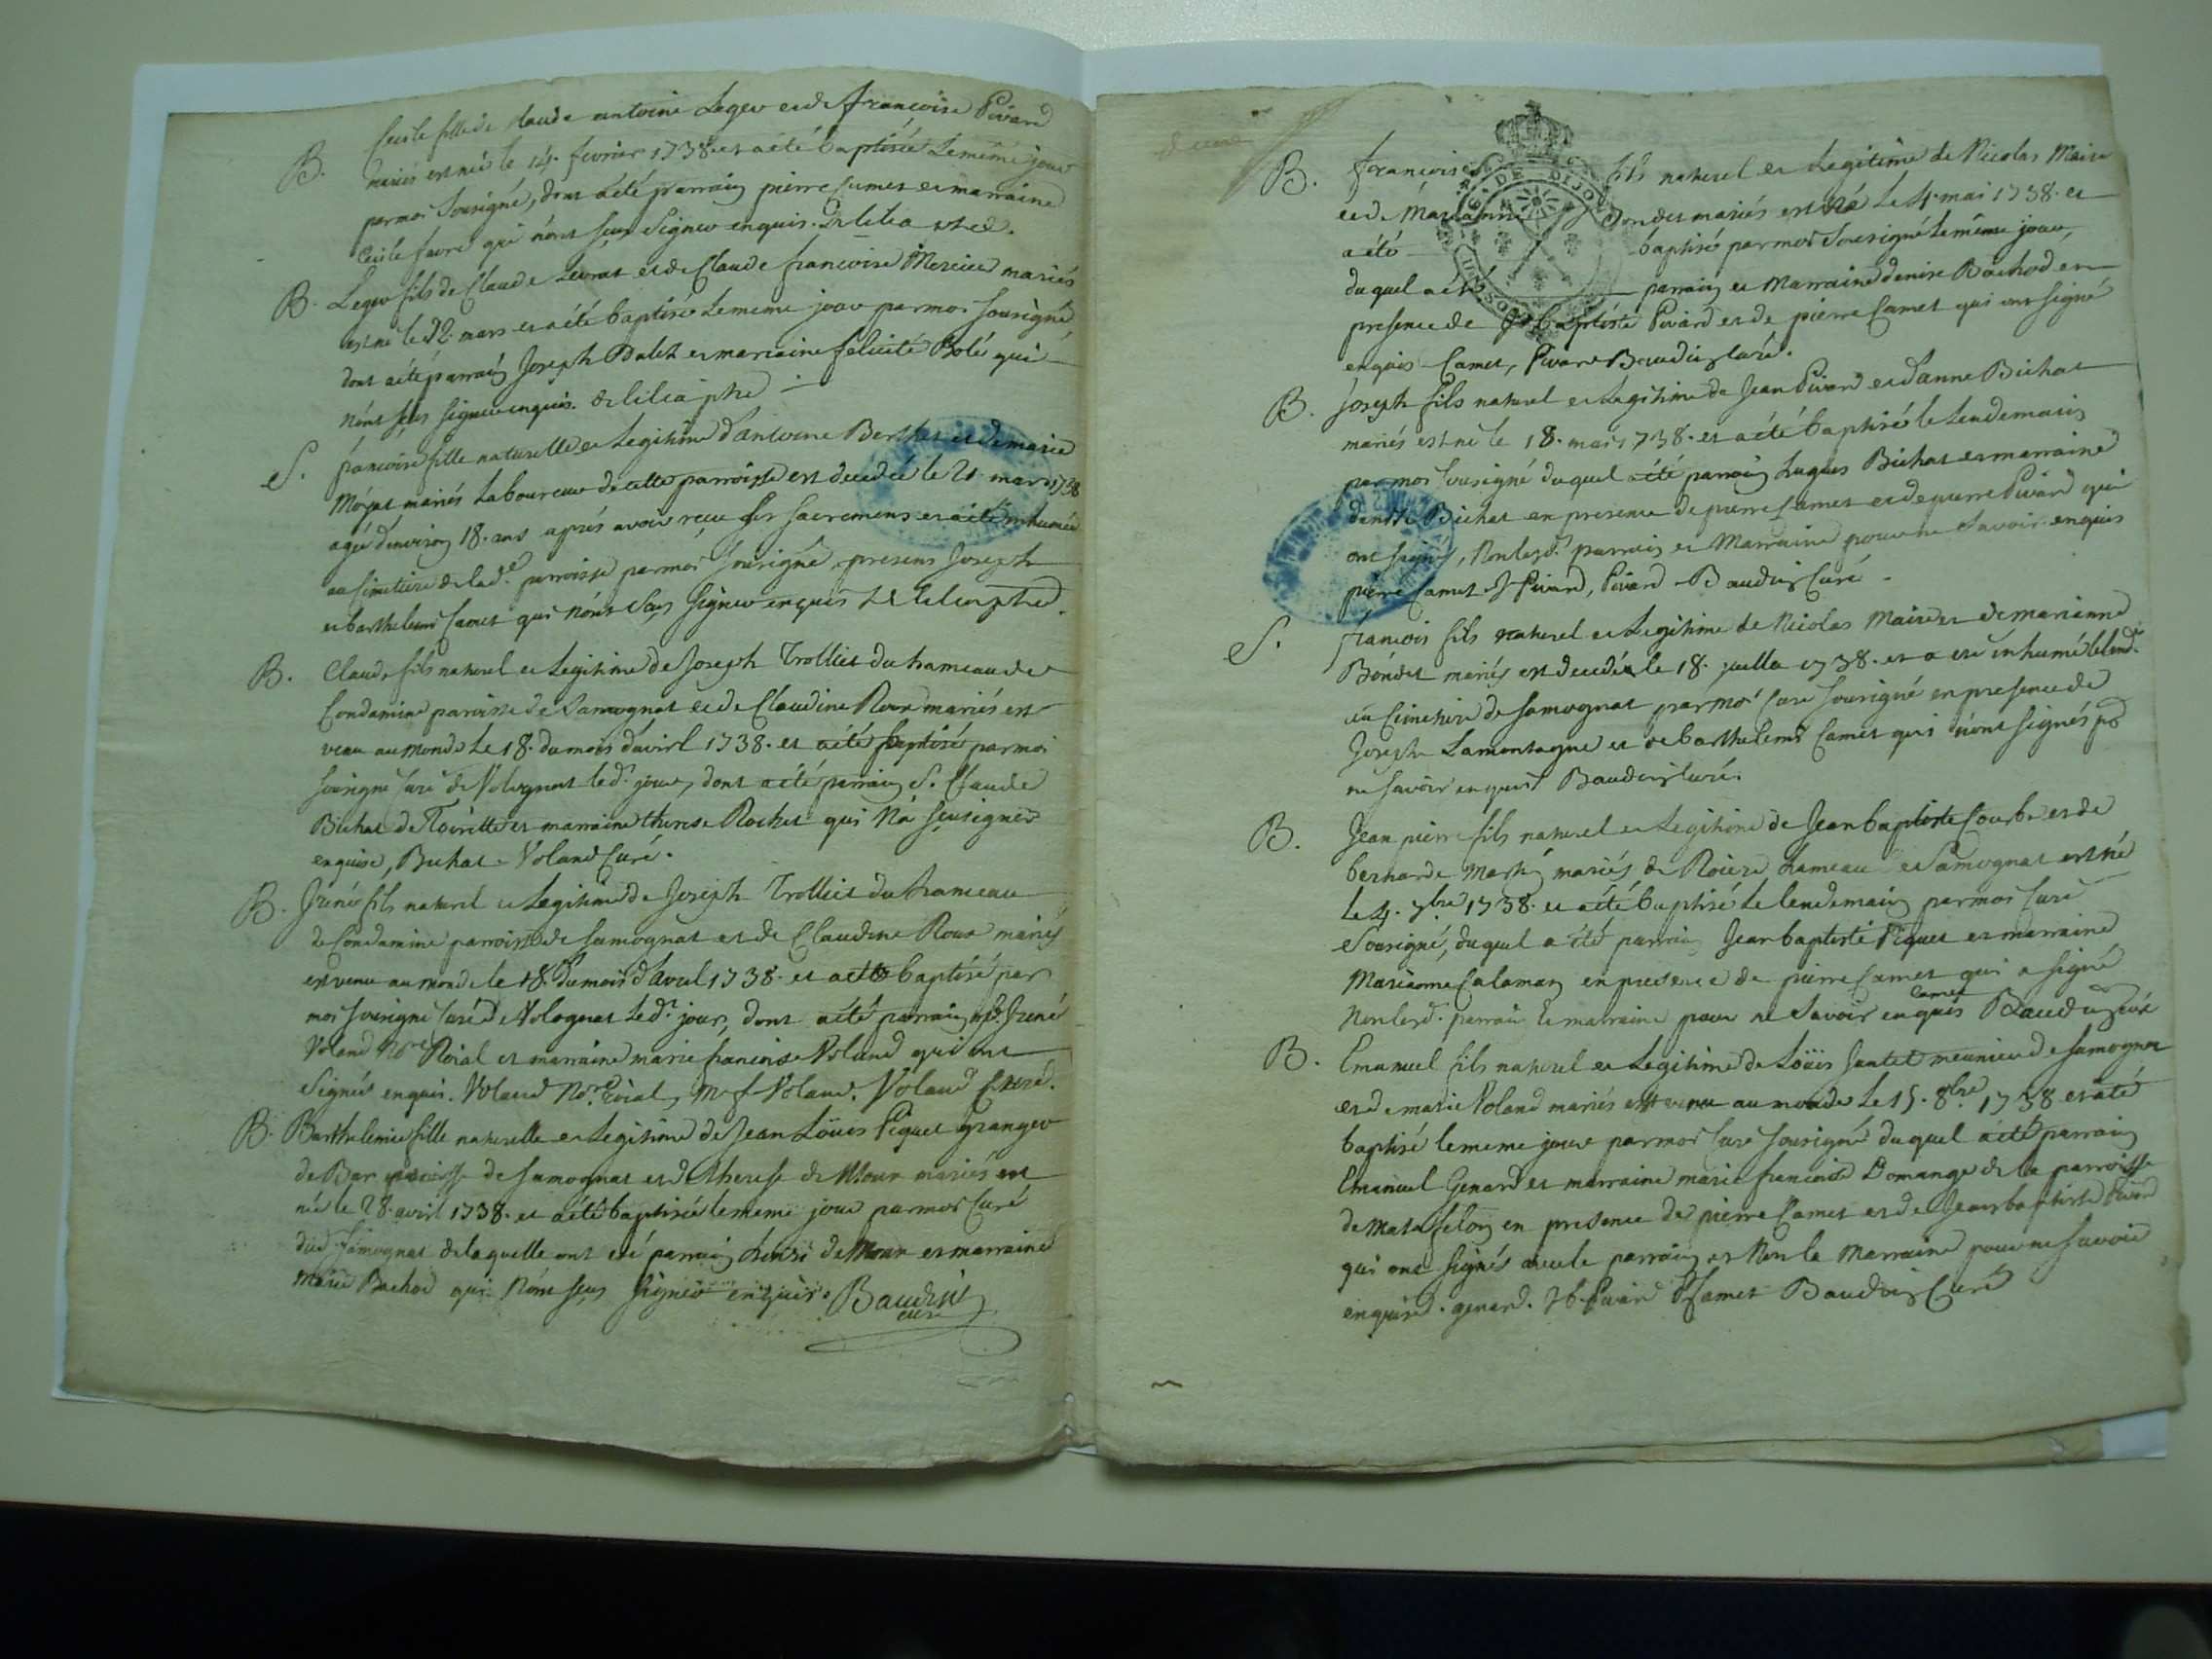 B. Cecile fille de Claude antoine Leger et de françoise Pivard
mariés est née le 14. fevrier 1738 et a été baptisée Le même jour
par moi Sousigné, dont a été parrain pierre Camet et marraine
Cecile favre qui n'ont sçeu Signer enquis.
B. Leger fils de Claude Levrat et de Claude françoise Mercier mariés
est né le 22. mars et a été baptisé Le meme jour par moi Sousigné
dont a été parrain Joseph Balet et marraine felicité Bolé qui
n'ont sçeu signer enquis.
S. francoise fille naturelle et Legitime d'antoine Berthet et de marie
Moyat mariés Laboureur de cette parroisse est decedée le 21 mars 1738
agée d'environ 18. ans aprés avoir reçeu ses sacremens et a été inhumée
au Cimetiere de lad.e parroisse par moi Sousigné, presens Joseph
et barthelemi Camet qui n'ont Sceu Signer enquis
B. Claude fils naturel et Legitime de Joseph Trolliet du hameau de
Condamine paroisse de Samognat et de Claudine Roux mariés est
venu au monde Le 18. du mois d'avirl 1738. et a été baptisé par moi
sousigné Curé de Volognat led.t jour, dont a été parrain S. Claude
Bichat de Toirette et marraine therese Rochet qui n'a sçeu signer
enquise, Bichat - Voland Curé.
B. Jrené fils naturel et Legitime de Joseph Trolliet du hameau
de Condamine parroisse de Samognat et de Claudine Roux mariés
est venu au monde le 18. du mois d'avril 1738. et a été baptisé par
moi sousigné Curé de Volognat Led.t jour, dont a été parrain Jrené
Voland No.re Roial et marraine marie francoise Voland qui ont
Signés enquis. Voland No.re Roial, M f Voland. Voland Curé.
B. Barthelemie fille naturelle et Legitime de Jean Loüis Piquet granger
de Bar paroisse de Samognat et de therese de Moux mariés est
née le 28. avril 1738. et a été baptisée le meme jour par moi Curé
dud. Samognat de laquelle ont été parrain denis de Moux et marraine
marie Bachod qui n'ont sçeu signer enquis. Baudin
curé
B. francois fils naturel et Legitime de Nicolas Maire
et de Marianne Bondet mariés est né Le 4. mai 1738. et
a été baptisé par moi Sousigné Le même jour,
duquel a été parrain et Marraine denise Bachod en
presence de J baptiste Pivard et de pierre Camet qui ont signé
enquis Camet, Pivard Baudin Curé.
B. Joseph fils naturel et Legitime de Jean Pivard et d'anne Bichat
mariés est né le 18. mai 1738. et a été baptisé le Lendemain
par moi Sousigné duquel a été parrain hugues Bichat et marraine
denise Bichat en presence de pierre Camet et de pierre Pivard qui
ont signé, Non lesd. parrain et Marraine pour ne Savoir enquis
pierre Camet J Pivard, Pivard - Baudin Curé.
S. francois fils naturel et Legitime de Nicolas Maire et de marianne
Bondet mariés est decedé le 18. juillet 1738. et a été inhumé le lend.
au Cimetiere de Samognat par moi Curé Sousigné en presence de
Joseph Lamontagne et de barthelemi Camet qui n'ont signés pr
ne savoir enquis Baudin Curé.
B. Jean pierre fils naturel et Legitime de Jean baptiste Courbe et de
bernarde Martin mariés de Roiere hameau de Samognat est né
le 4. 7bre 1738. et a été baptisé Le lendemain par moi Curé
Sousigné, duquel a été parrain Jean baptiste Piquet et marraine
Marianne Calaman en presence de pierre Camet qui a signé
Non lesd. parrain et marraine pour ne Savoir enquis Camet Baudin Curé
B. Emanuel fils naturel et Legitime de Loüis Jantet meunier de Samognat
et de marie Voland mariés est venu au monde Le 15. 8bre 1738 et a été
baptisé le meme jour par moi Curé sousigné duquel a été parrain
Emanuel Genard et marraine marie francoise Domange de la parroisse
de Matafelon en presence de pierre Camet et de Jean baptiste Pivard
qui ont signés avec le parrain et Non la Marraine pour ne savoir
enquise. genard. J b Pivard P Camet Baudin Curé